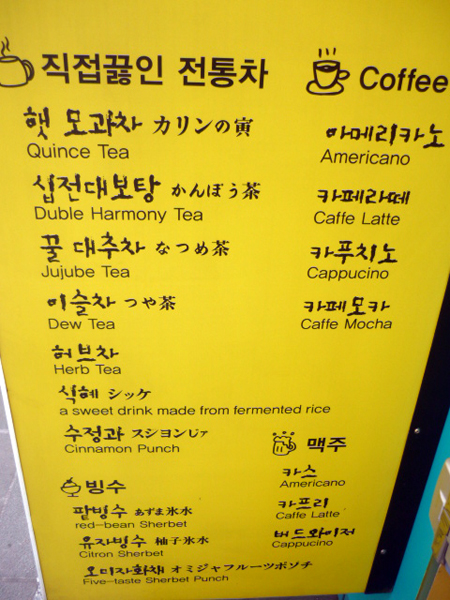 직접끓인 전통차
햇 모과차 カリンの寅
Quince Tea
십전대보탕 かんぼう茶
Duble Harmony Tea
꿀 대추차 なつめ茶
Jujube Tea
이슬차 つや茶
Dew Tea
허브차
Herb Tea
식혜 シッケ
a sweet drink made from fermented rice
수정과 スジョンじァ
Cinnamon Punch
빙수
팥빙수 あずま氷水
red-bean Sherbet
유자빙수 柚子氷水
Citron Sherbet
오미자화채 オミジャフルーツポンチ
Five-taste Sherbet Punch
Coffee
아메리카노
Americano
카페라떼
Caffe Latte
카푸치노
Cappucino
카페모카
Caffe Mocha
맥주
카스
Americano
카프리
Caffe Latte
버드와이저
Cappucino